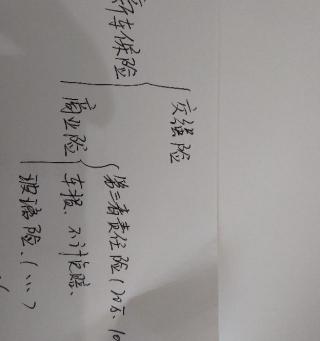 新车保险
交强险
商业险
第三者责任险(20万、10
车损、不计免赔、
玻璃险.(...)